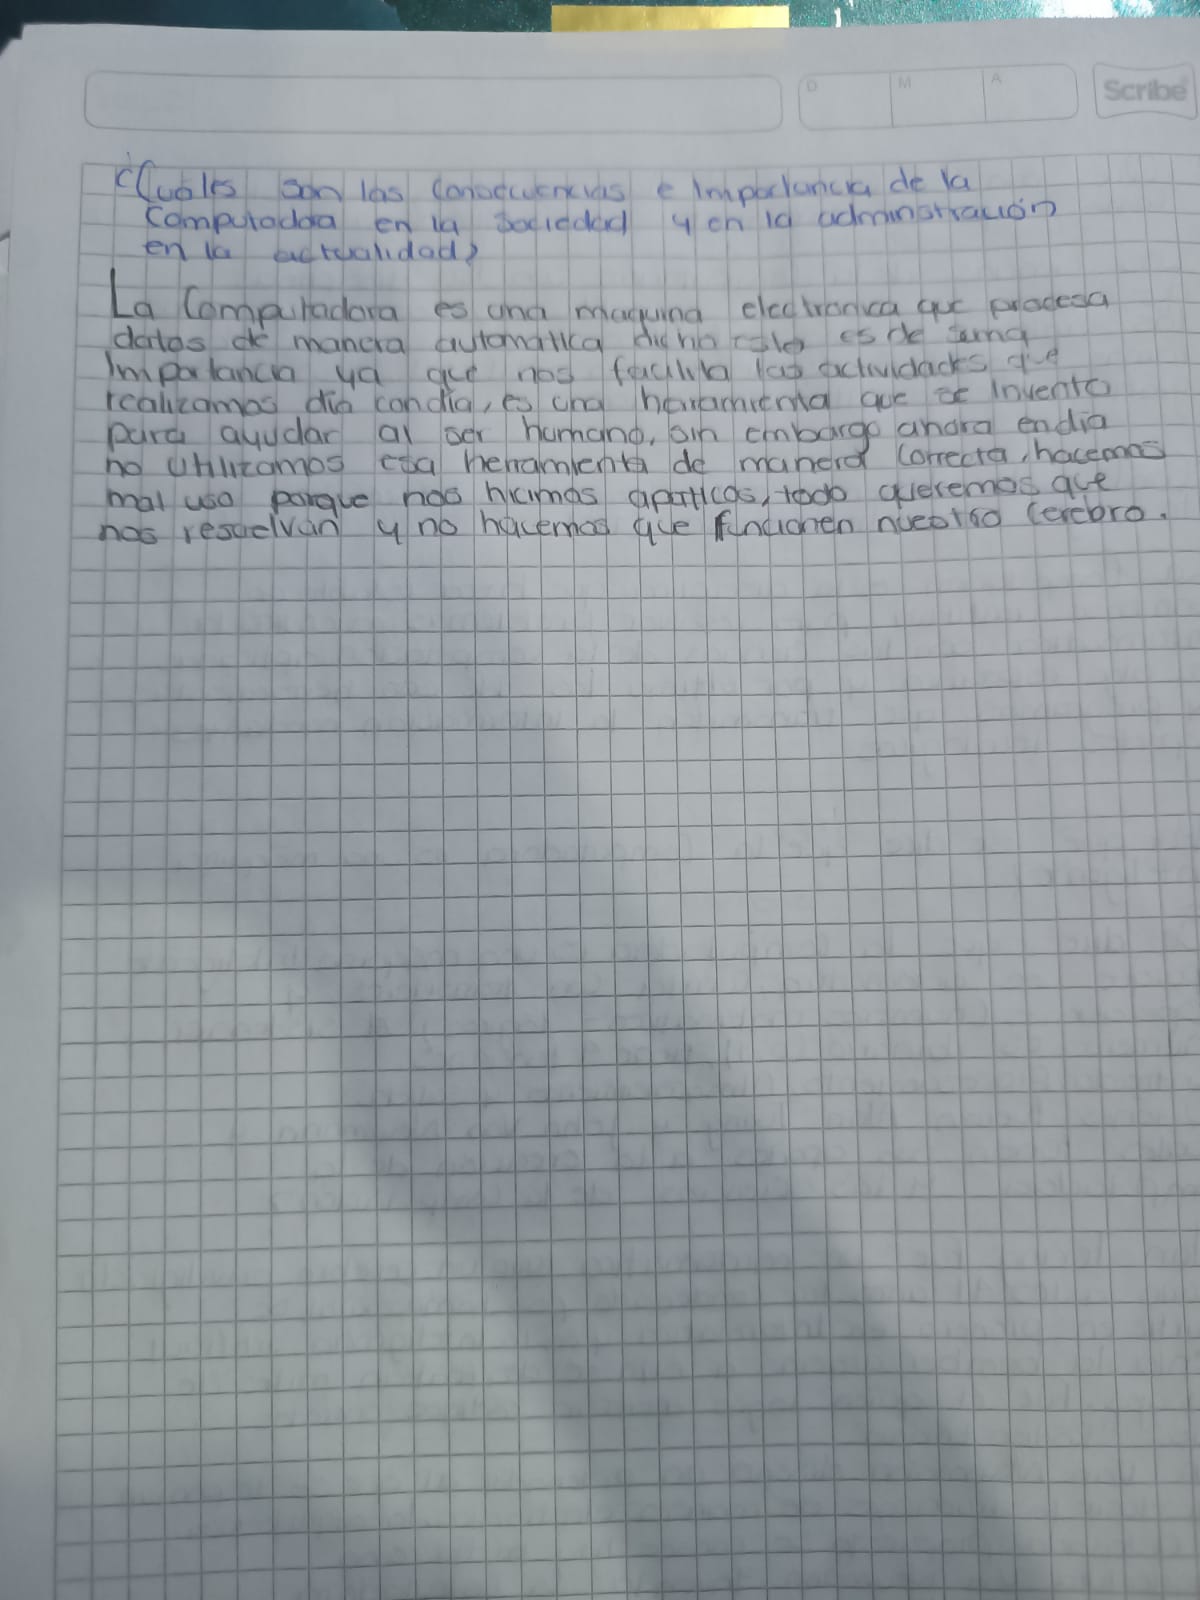 D M A Scribe
¿Cuáles son las consecuencias e Importancia de la
Computadoa en la sociedad y en la administración
en la actualidad?
La Computadora es una maquina electronica que procesa
datos de manera automatica dicho esto es de suma
Importancia ya que nos facilita las actividades que
realizamos dia con dia, es una herramienta que se Invento
para ayudar al ser humano, sin embargo ahora en dia
no utilizamos esa herramienta de manera correcta, hacemos
mal uso porque nos hicimos apaticos, todo queremos que
nos resuelvan y no hacemos que funcionen nuestro cerebro.